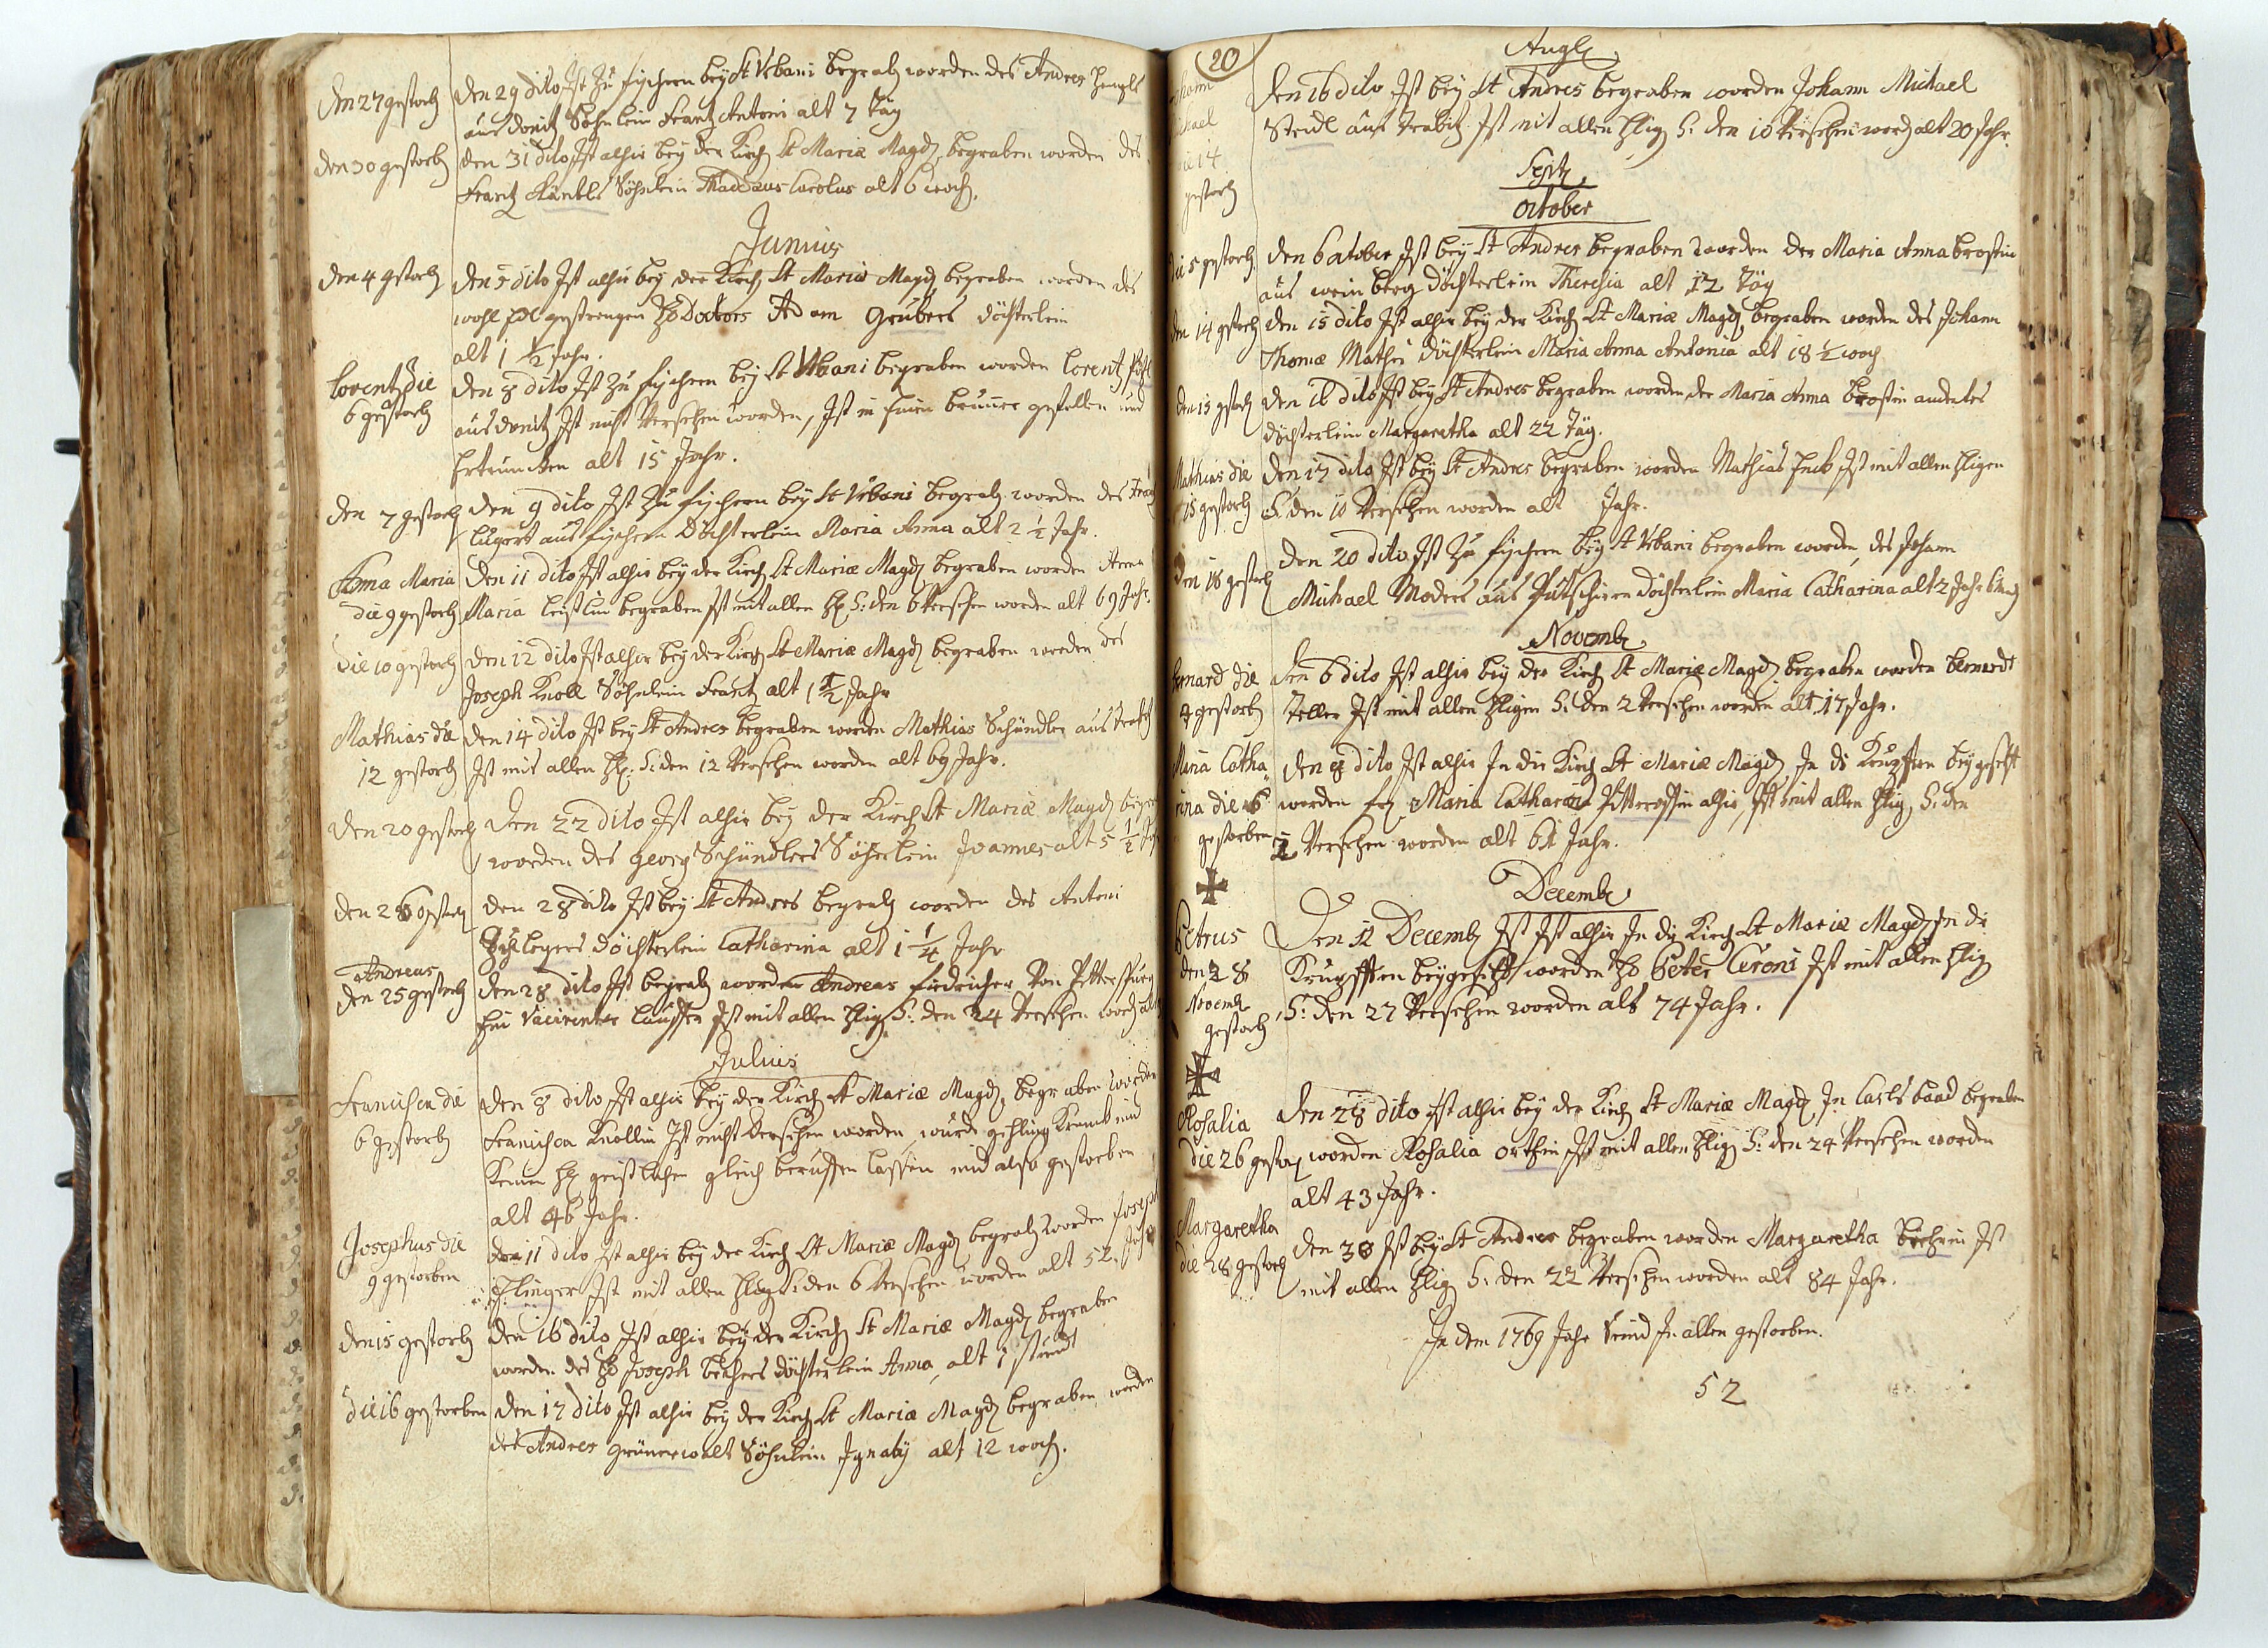 den 27 gestorb
den 29 dito Ist Zu fischern bey St Urbani begrab worden des Andres
aus donitz Söhnlein Frantz Antoni alt 7 täg
den 30 gestorb
den 31 dito Ist alhir bey der Kirch St Mariæ Magd, begraben worden des
Frantz Söhnlein Thaddæus Carolus alt 6 woch.
Junius
den 4 gstorb
den 5 dito Ist alhir bey der Kirch St Mariæ Magd begraben worden des
wohl Edl gestrengen H Doctors Adam Grubers döchterlein
alt 1 ½ Jahr.
Lorentz die
6 gestorb
den 8 dito Ist Zu fischern bey St Urbani begraben worden Lorentz
aus donitz Ist nicht Versehen worden, Ist in Einen brunnen gefallen und
Ertruncken alt 15 Jahr.
den 7 gestorb
den 9 dito Ist Zu fischern bey St Urbani begrab worden des
Lugert aus fischern Döchterlein Maria Anna alt 2 ½ Jahr.
Anna Maria
die 9 gestorb
den 11 dito Ist alhir bey der Kirch St Mariæ Magd begraben worden Anna
Maria begraben Ist mit allen H S: den 6 Versehen worden alt 69 Jahr.
die 10 gestorb
den 12 dito Ist alhir bey der Kirch St Mariæ Magd begraben worden des
Joseph Knoll Söhnlein Frantz alt 1 ½ Jahr
Mathias die
12 gestorb
den 14 dito Ist bey St Andres begraben worden Mathias Schindler aus
Ist mit allen H: S: den 12 Versehen worden alt 69 Jahr.
den 20 gestorb
den 22 dito Ist alhir bey der Kirch St Mariæ Magd
worden des Georg Schindlers Söhnlein Joannes alt 5 ½
den 26 gstorb
den 28 dito Ist bey St Andres begrab worden des Antoni
döchterlein Catharina alt 1 ¼ Jahr
Andreas
den 25 gestorb
den 28 dito Ist begrab worden Andreas Fridricher Von
Ein Vacirenter Ist mit allen Hlig S: den 24 Versehen
Julius
Francisca die
6 gestorb
den 8 dito Ist alhir bey der Kirch St Mariæ Magd, begraben worden
Francisca Knollin Ist nicht Versehen worden, wurde gehling Kranck und
Keinen H geistlichen gleich beruffen lassen und also gestorben
alt 46 Jahr.
Josephus die
9 gestorben
den 11 dito Ist alhir bey der Kirch St Mariæ Magd begrab worden Joseph
Ist mit allen Hlig S: den 6 Versehen worden alt 52 Jahr
den 15 gestorb
den 16 dito Ist alhir bey der Kirch St Mariæ Magd begraben
worden des H Joseph Bechers döchterlein Anna, alt 1 stund
die 16 gestorben
den 17 dito Ist alhir bey der Kirch St Mariæ Magd begraben worden
des Andres Grünerwalt Söhnlein Ignatij alt 12 woch.
20
Aug
14
gestorb
den 16 dito Ist bey St Andres begraben worden Johann Michael
Steidl aus Ist mit allen Hlig S: den 10 Versehen word alt 20 Jahr.
Septb
October
die 5 gestorb
den 6 october Ist bey St Andres begraben worden der Maria Anna brostin
aus wein berg döchterlein Theresia alt 12 täg
den 14 gestorb
den 15 dito Ist alhir bey der Kirch St Mariæ Magd, begraben worden des Johann
Thomæ Mathes döchterlein Maria Anna Antonia alt 18 ½ woch
den 15 gstorb
den 16 dito Ist bey St Andres begraben worden der Maria Anna brostin anderes
döchterlein Margaretha alt 22 täg.
Mathias die
15 gestorb
den 17 dito Ist bey St Andres begraben worden Mathias Ist mit allen Hligen
S: den 10 Versehen worden alt Jahr.
den 18 gestorb
den 20 dito, Ist Zu fischern bey St Urbani begraben worden des Johann
Michael Moders aus Putschirn döchterlein Maria Catharina alt 2 Jahr
Novemb
bernard die
4 gestorb
den 6 dito Ist alhir bey der Kirch St Mariæ Magd, begraben worden bernardt
Zeller Ist mit allen Hligen S: den 2 Versehen worden alt 17 Jahr.
Maria Catha
rina die 6
gestorben
den 8 dito Ist alhir In die Kirch St Mariæ Magd, In di Krufften bey gesetzt
worden Fr Maria Catharina alhir, Ist mit allen Hlig S: den
5 Versehen worden alt 61 Jahr.
Decemb
Petrus
den 28
Novemb
gestorb
Den 12 Decemb Ist Ist alhir In die Kirch St Mariæ Magd, In di
Krufften beygesetzt worden H Peter Ceroni Ist mit allen Hlig
S: den 27 Versehen worden alt 74 Jahr.
Rosalia
die 26 gestorb
den 28 dito Ist alhir bey der Kirch St Mariæ Magd In Carls baad begraben
worden Rosalia orthin Ist mit allen Hlig S: den 24 Versehen worden
alt 43 Jahr.
Margaretha
die 28 gestorb
den 30 Ist bey St Andres begraben worden Margaretha Ist
mit allen Hlig S: den 22 Versehen worden alt 84 Jahr.
In dem 1769 Jahr Seind In allen gestorben.
52